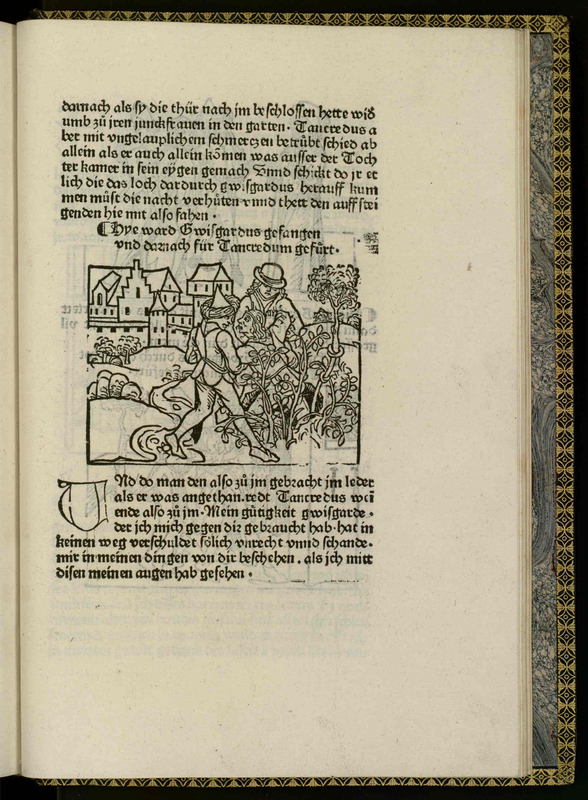 darnach als sy die thür nach jm beschlossen hette wid
umb zů jren junckfrauen in den garten. Tancredus a
ber mit vngelauplichem schmerczen betrübt schied ab
allein als er auch allein kömen was ausser der Toch
ter kamer in sein eygen gemach Vnnd schickt do jr et
lich die das loch dardurch gwisgardus herauff kum
men müst die nacht verhüten vnnd thett den auff stei
genden hie mit also fahen.
Hye ward Gwisgardus gefangen
vnd darnach für Tancredum gefürt.
VNd do man den also zů jm gebracht jm leder
als er was angethan. redt Tancredus wei
ende also zů jm. Mein gütigkeit gwisgarde.
der ich mich gegen dir gebraucht hab. hat in
keinen weg verschuldet sölich vnrecht vnnd schande.
mir in meinen dingen von dir beschehen. als jch mitt
disen meinen augen hab gesehen.